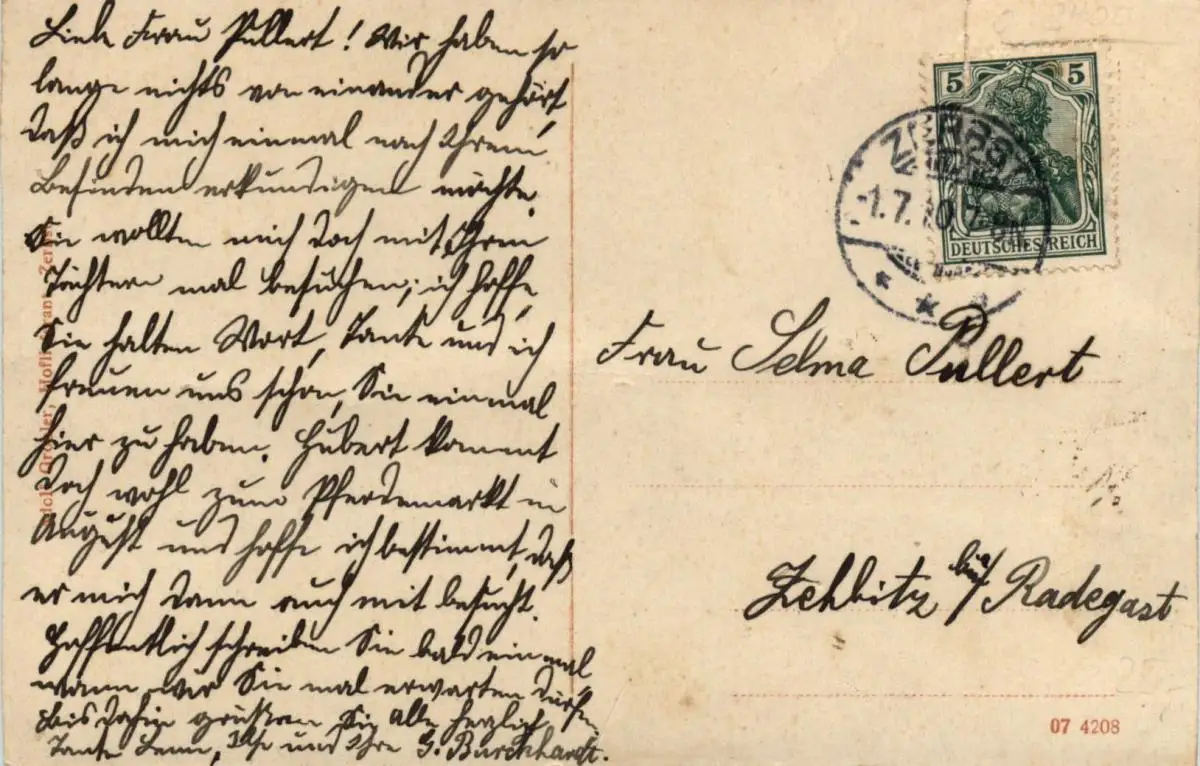 Liebe Frau Pullert! Wir haben so
lange nichts von einander gehört,
daß ich mich einmal nach Ihrem
Befinden erkundigen möchte.
Sie wollten mich doch mit Ihren
Töchtern mal besuchen; ich hoffe,
Sie halten Wort, Tante und ich
freuen uns schon, Sie einmal
hier zu haben. Hubert kommt
doch wohl zum Pferdemarkt im
August und hoffe ich bestimmt, daß
er mich dann auch mit besucht.
Hoffentlich schreiben Sie bald einmal
wann wir Sie mal erwarten dürfen
bis dahin grüßen Sie alle herzlich
Tante und Ihre G. Burckhardt.
5 5
1.7.10.7-8N
DEUTSCHES REICH
Frau Selma Pullert
Zehbitz bei Radegast
07 4208